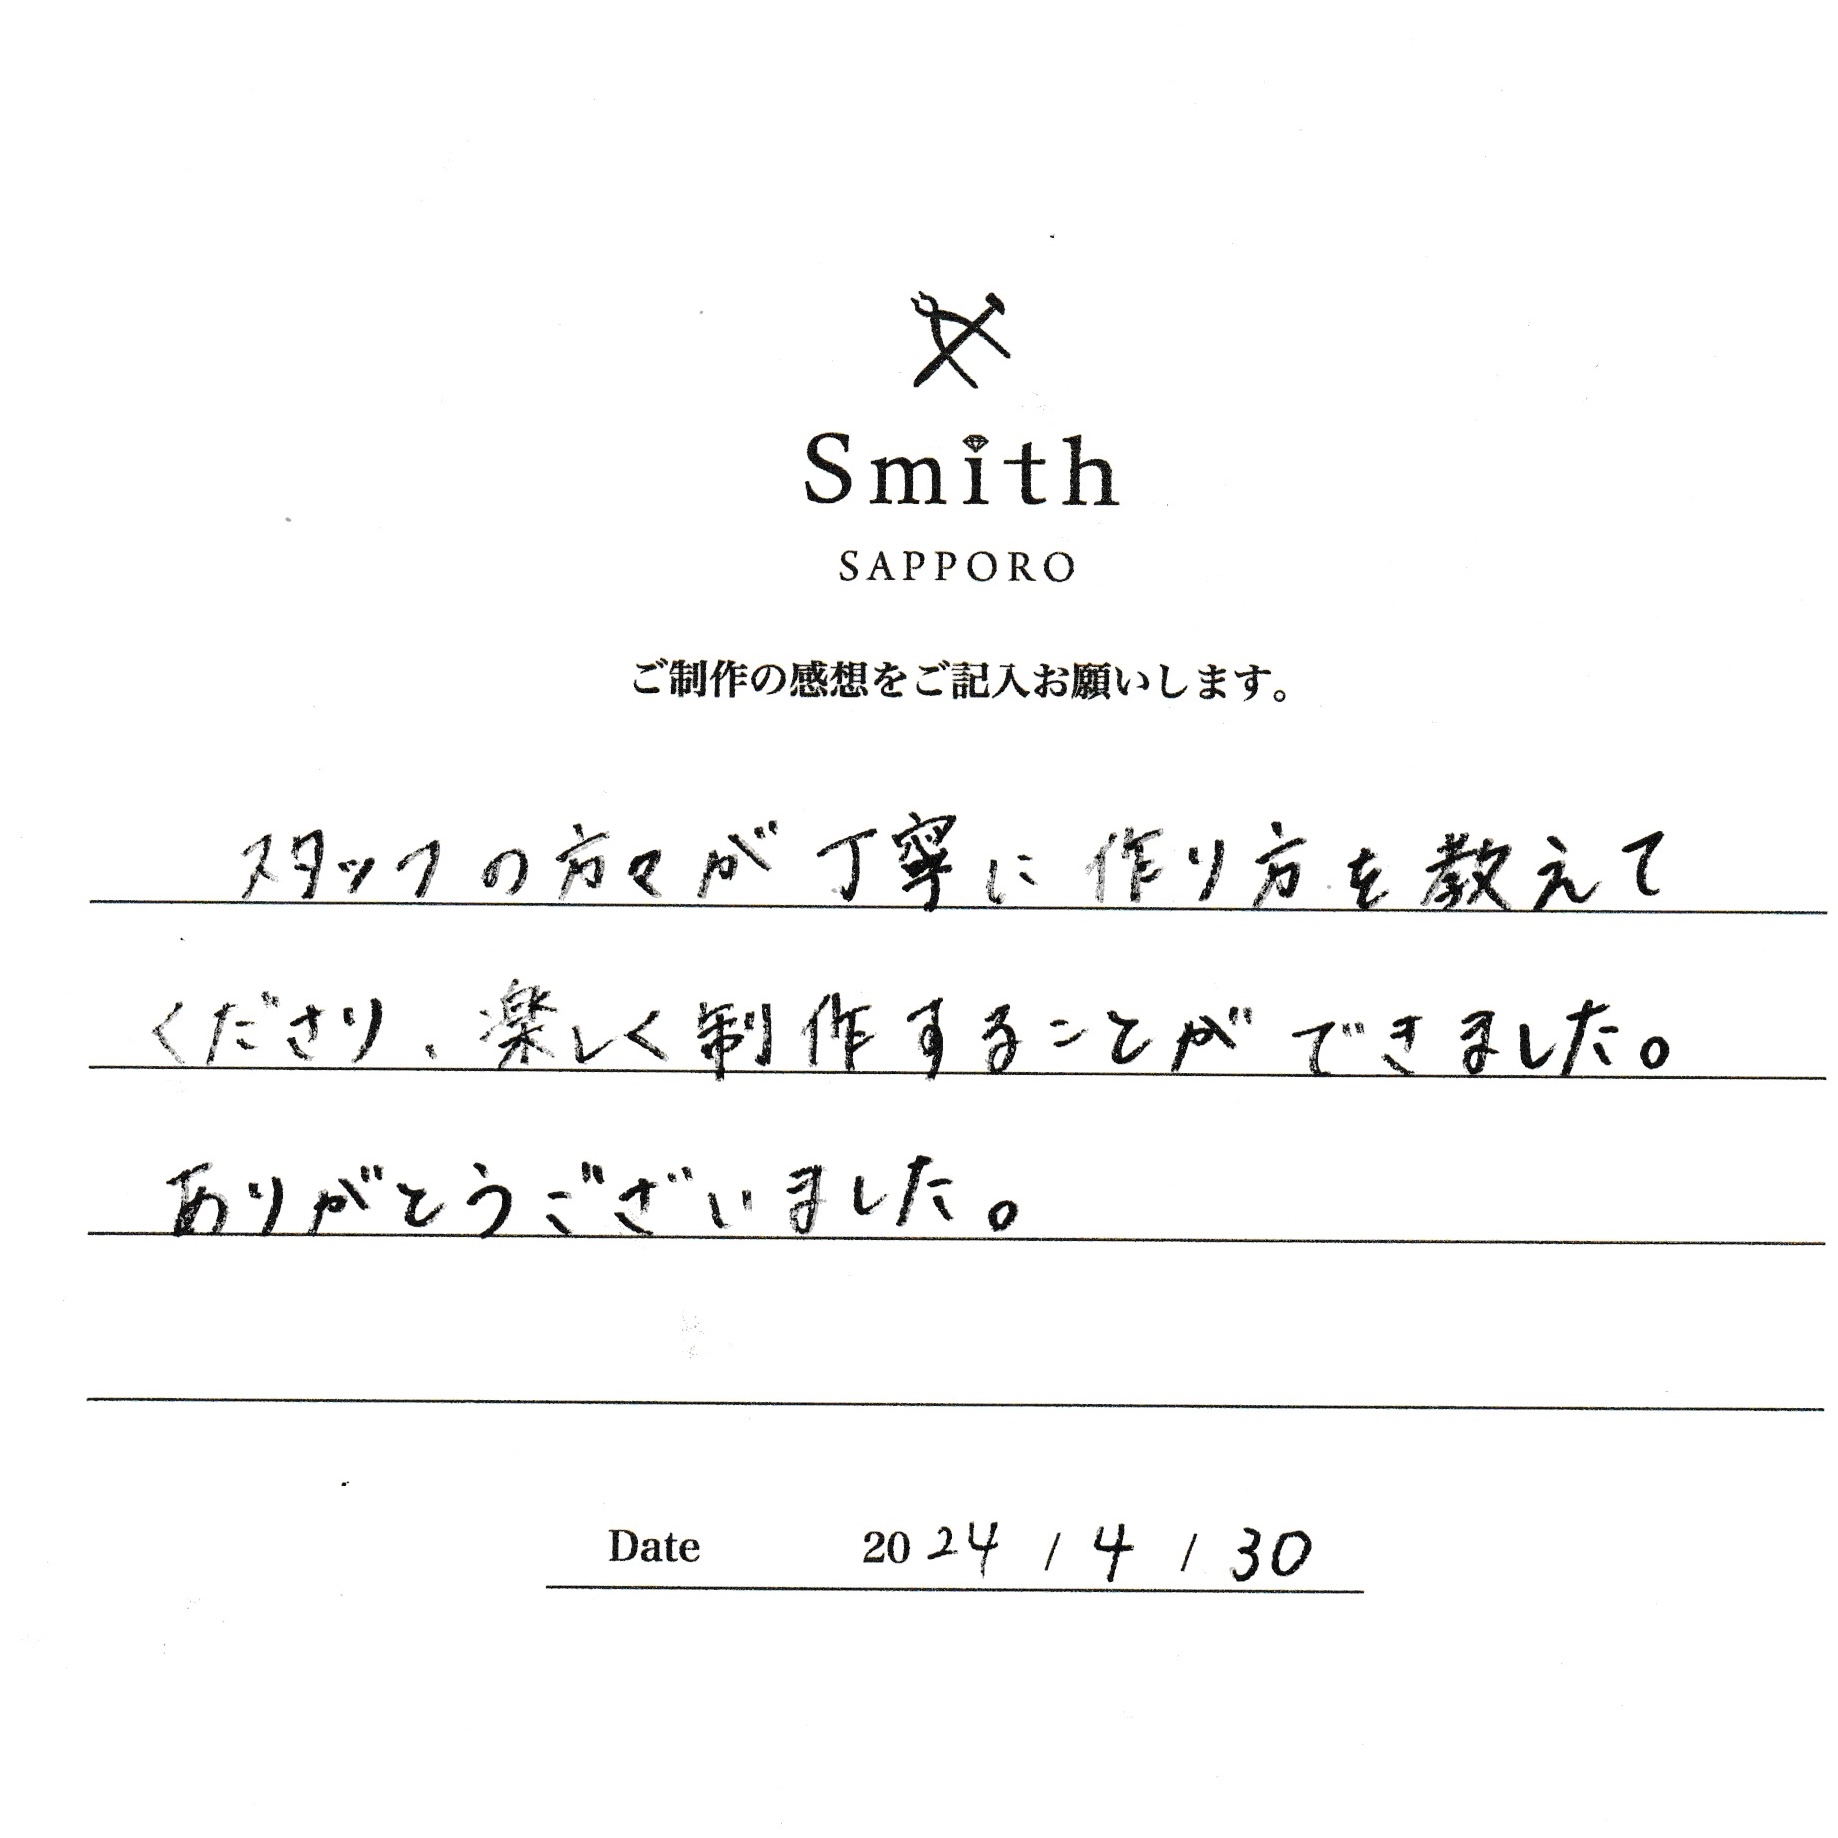 Smith
SAPPORO
ご制作の感想をご記入お願いします。
スタッフの方々が丁寧に作り方を教えて
くださり、楽しく制作することができました。
ありがとうございました。
Date 2024 / 4 / 30